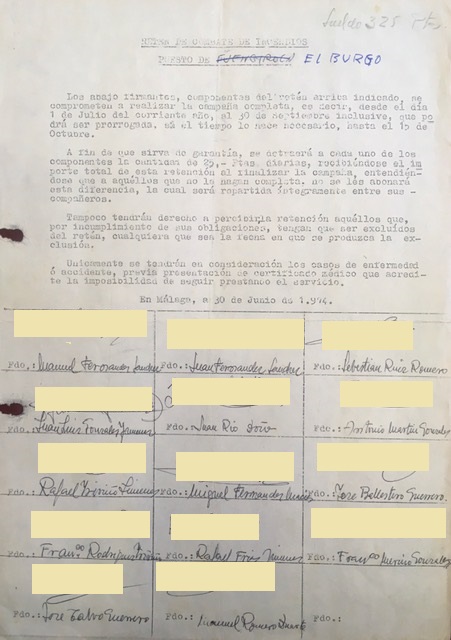 Sueldo 325 Pts.
RETEN DE COMBATE DE INCENDIOS
PUESTO DE FUENGIROLA EL BURGO
Los abajo firmantes, componentes del retén arriba indicado, se
comprometen a realizar la campaña completa, es decir, desde el día
1 de Julio del corriente año, al 30 de Septiembre inclusive, que po
drá ser prorrogada, si el tiempo lo hace necesario, hasta el 15 de
Octubre.
A fin de que sirva de garantía, se retendrá a cada uno de los
componentes la cantidad de 25,- Ptas. diarias, recibiéndose el im
porte total de esta retención al finalizar la campaña, entendién-
dose que a aquéllos que no la hagan completa, no se les abonará
esta diferencia, la cual será repartida íntegramente entre sus -
compañeros.
Tampoco tendrán derecho a percibir la retención aquéllos que,
por incumplimiento de sus obligaciones, tengan que ser excluidos
del retén, cualquiera que sea la fecha en que se produzca la ex-
clusión.
Unicamente se tendrán en consideración los casos de enfermedad
ó accidente, previa presentación de certificado médico que acredi-
te la imposibilidad de seguir prestando el servicio.
En Málaga, a 30 de Junio de 1.974.
Fdo.: Manuel Fernandez Sanchez Fdo.: Juan Fernandez Sanchez Fdo.: Sebastian Ruiz Romero
Fdo.: Juan Luis Gonzalez Fdo.: Juan Rio Doña Fdo.: Antonio Martin Gonzalez
Fdo.: Rafael Jimenez Fdo.: Miguel Fernandez Fdo.: Jose Ballestero Guerrero
Fdo.: Franco Rodriguez Fdo.: Rafael Jimenez Fdo.: Franco Merino Gonzalez
Fdo.: Jose Calvo Guerrero Fdo.: Manuel Romero Fdo.: